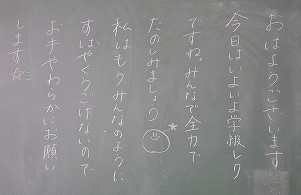 おはようございます
今日はいよいよ学級レク
ですね。みんなで全力で
たのみましょう
私はもうみんなのように
すばやくうごけないので
お手やわらかにお願い
します